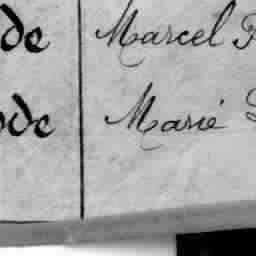 de Marcel F
ode Marie